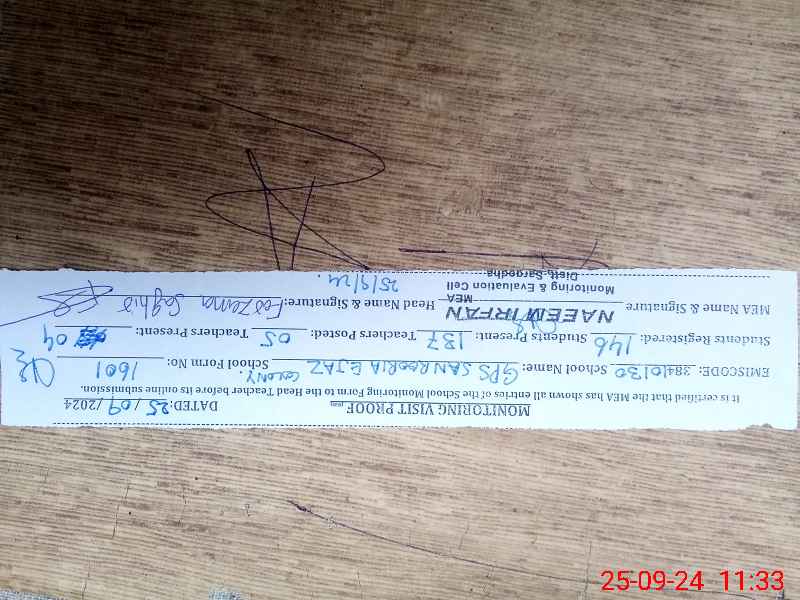 MONITORING VISIT PROOF DATED: 25/09/2024
It is certified that the MEA has shown all entries of the School Monitoring Form to the Head Teacher before its online submission.
EMISCODE: 38410130 School Name: GPS SANROORIA EJAZ COLONY. School Form No: 1601
Students Registered: 146 Students Present: 137 Teachers Posted: 05 Teachers Present: 04
MEA Name & Signature NAEEM IRFAN Head Name & Signature:
MEA
Monitoring & Evaluation Cell
Distt, Sargodha
25/9/24.
25-09-24 11:33